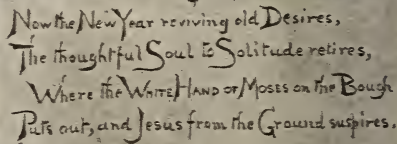 Now the New Year reviving old Desires,
The thoughtful Soul to Solitude retires,
Where the WHITE HAND OF MOSES on the Bough
Puts out, and Jesus from the Ground suspires.